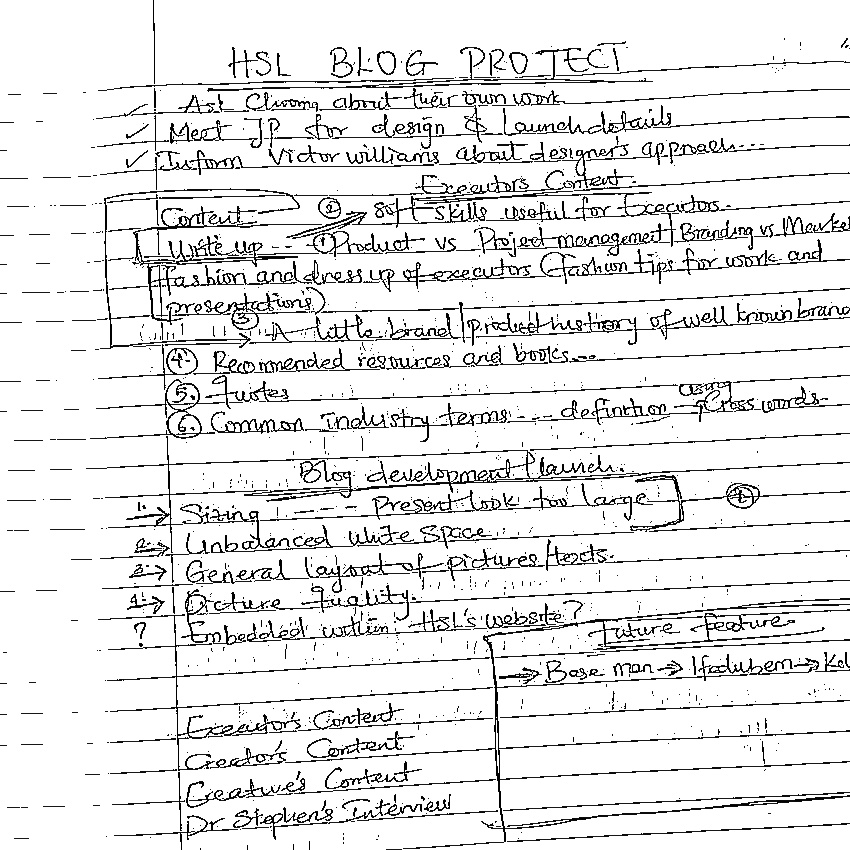 HSL BLOG PROJECT
✓ Ask Chioma about their own work
✓ Meet JP for design & launch details
✓ Inform Victor williams about designer's approach...
Executor's Content
Content ② → soft skills useful for Executors.
Write up -- ① Product vs Project management | Branding vs Market
fashion and dress up of executors (fashion tips for work and
presentations)
③ A little brand/product history of well known brand
④ Recommended resources and books...
⑤ Quotes
⑥ Common Industry terms --- definition → using Cross words
Blog development/launch.
1. → Sizing ---- Present look too large
2. → Unbalanced White Space
3. → General layout of pictures/texts.
4. → Picture Quality.
? Embedded within HSL's website?
Future feature
→ Base man → Ifedubem → Kel
Executor's Content
Creator's Content
Creative's Content
Dr Stephen's Interview